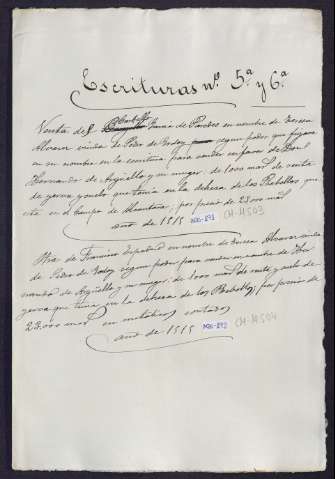 Escrituras nº 5ª y 6ª
Venta de García de Paredes en nombre de Teresa
Alvarez viuda de Pedro de Godoy segun poder que figura
en su nombre en la escritura, para vender en favor de
Hernando de Argüello y su muger, de 1.000 mrs de renta
de yerva y suelo que tenia en la dehesa de los Rebollos, que
está en el Campo de por precio de 23.000 mrs
año de 1515 MR-291 CH-M503
Otra de Francisco Español en nombre de Teresa Alvarez viuda
de Pedro de Godoy segun poder para vender en nombre de
Argüello y su muger de 1.000 mrs de renta y suelo de
yerva que tenia en la dehesa de los Rebollos, por precio de
23.000 mrs en contado
año de 1515 MR-292 CH-M504